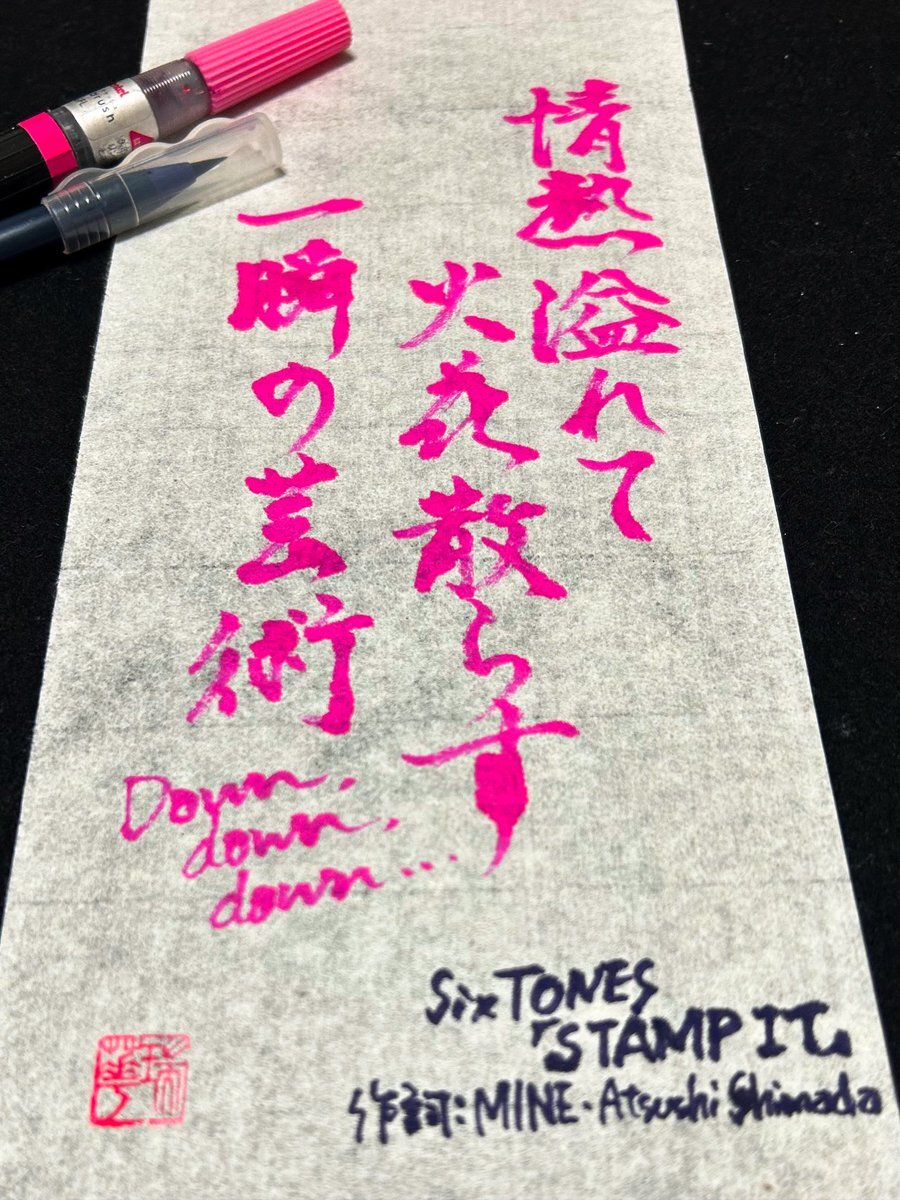 情熱溢れて
火花散らす
一瞬の芸術
Down,
down,
down...
SixTONES
「STAMP IT」
作詞:MINE・Atsushi Shimada